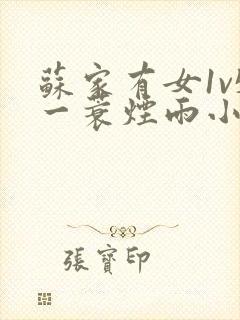 蘇家有女1v
一蓑煙雨小
張寶印